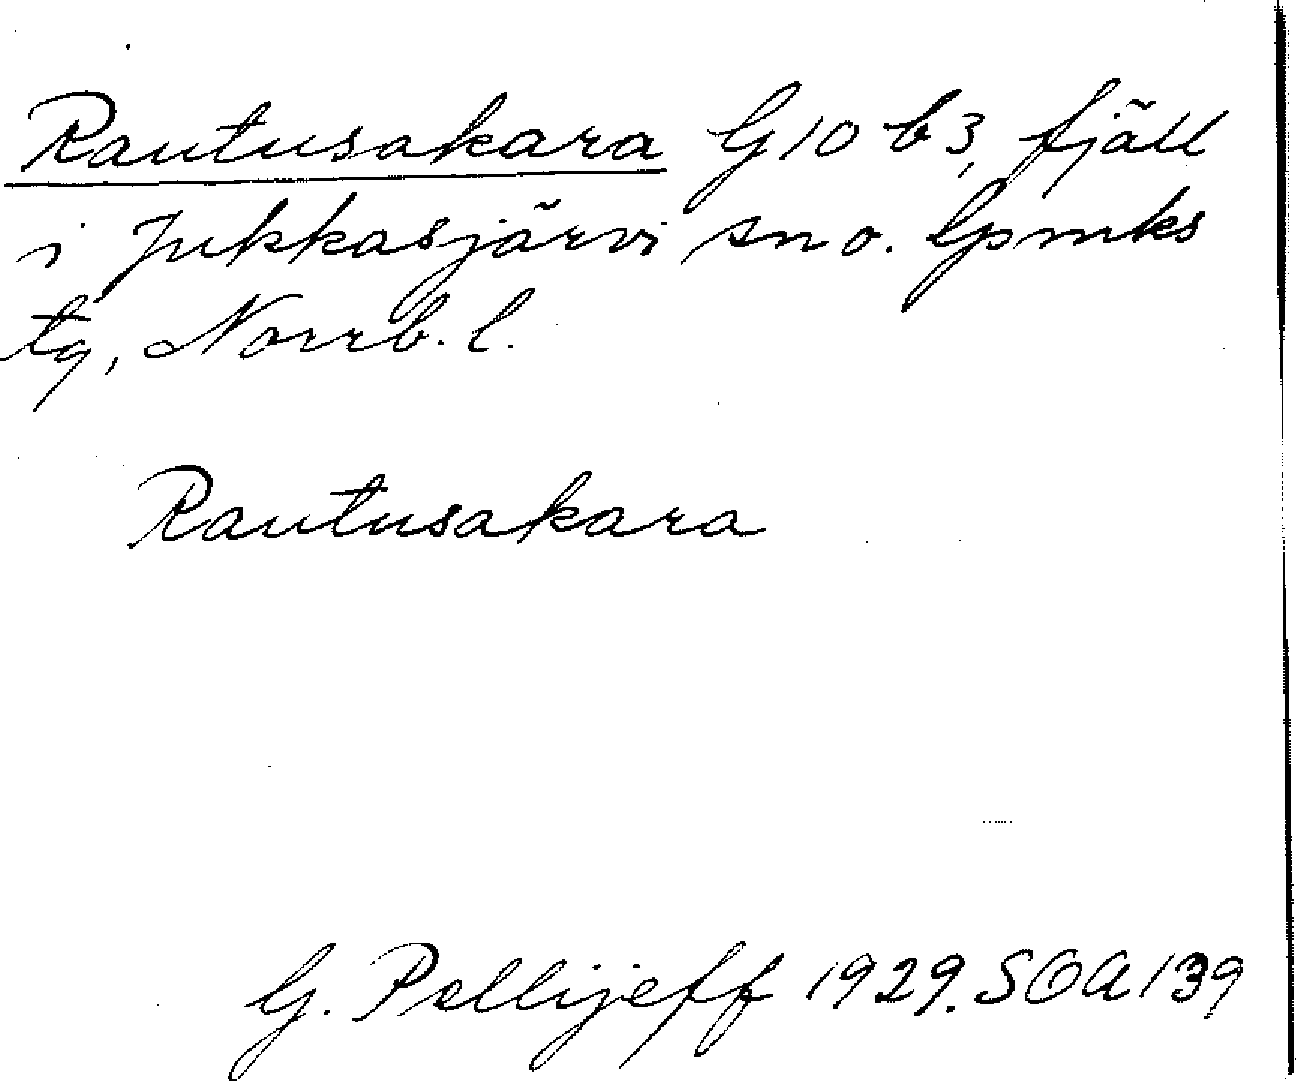 Rautusakara G 10 b 3, fjäll
i Jukkasjärvi sn o. lpmks
tg, Norrb. l.
Rautusakara
G. Pellijeff 1929. SOA 139